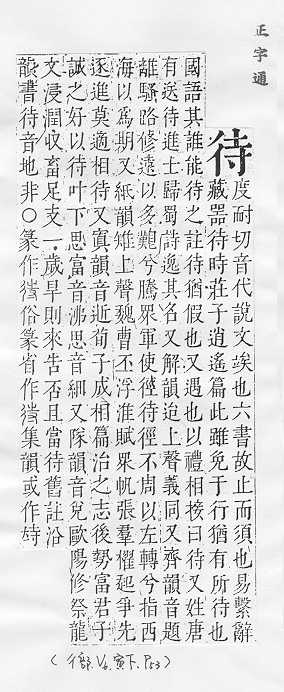 正字通
待
度耐切音代說文竢也六書故止而須也易繫辭
藏器待時莊子逍遙篇此雖免于行猶有所待也
國語其誰能待之註待猶假也又遇也以禮相接曰待又姓唐
有送待進士歸蜀詩逸其名又解韻迨上聲義同又齊韻音題
離騷路修遠以多艱兮騰眾軍使徑待徑不周以左轉兮指西
海以為期又紙韻雉上聲魏曹丕浮淮賦眾帆張羣櫂起爭先
逐進莫適相待又寘韻音近荀子成相篇治之志後勢富君子
誠之好以待叶下思富音沸思音細又隊韻音兌歐陽修祭龍
文浸潤收畜足支一歲旱則來告否且當待舊註沿
韻書待音地非〇篆作俗篆省作集韻或作
(彳部, V6, 寅下, P53)